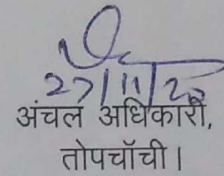 27/11/23
अंचल अधिकारी,
तोपचाँची।